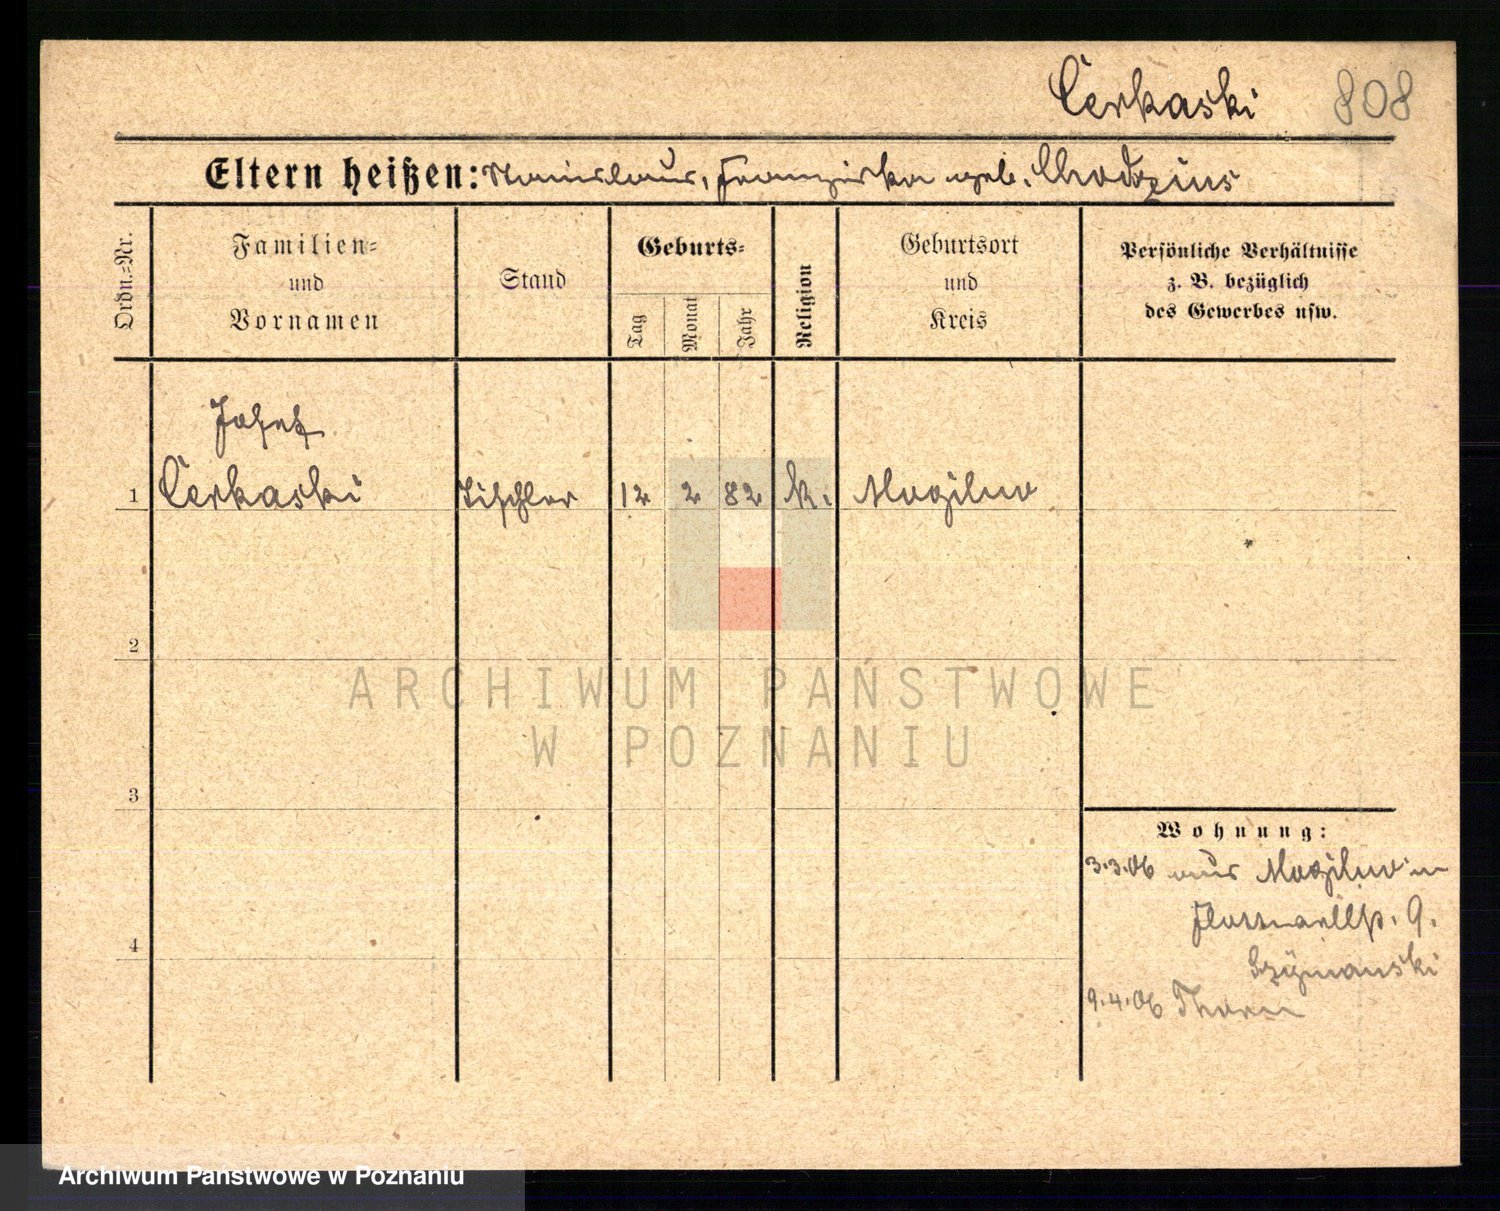 Cerkaski 808
Eltern heißen: Stanislaus, Franziska geb. Chodzius
Ordn.=Nr.
Familien=
und
Vornamen
Stand
Geburts=
Tag
Monat
Jahr
Religion
Geburtsort
und
Kreis
Persönliche Verhältnisse
z. B. bezüglich
des Gewerbes usw.
Josef
1 Cerkaski Tischler 12 2 82 k. Mogilno
2
3
4
Wohnung:
3.3.06 aus Mogilno n
9.
Szymanski
9.4.06 Thorn
ARCHIWUM PAŃSTWOWE
W POZNANIU
Archiwum Państwowe w Poznaniu